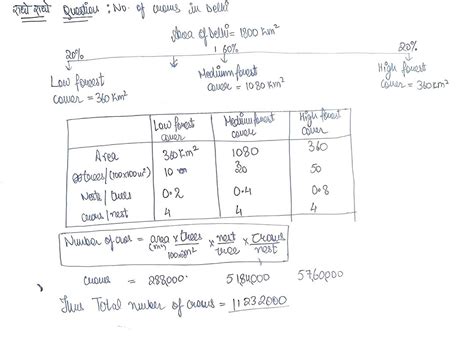 राधे राधे Question : No. of crows in Delhi
Area of Delhi = 1800 Km²
20% 60% 20%
Low forest cover = 360 Km²
Medium forest cover = 1080 Km²
High forest cover = 360 Km²
Low forest cover Medium forest cover High forest cover
Area 360 Km² 1080 360
trees/(100x100m²) 10 20 50
Nests / trees 0.2 0.4 0.8
crows / nest 4 4 4
Number of crows = area (m²) x trees / 100x100m² x nest / tree x crows / nest
crows = 288,000 5184,000 5760,000
Thus Total number of crows = 11232000